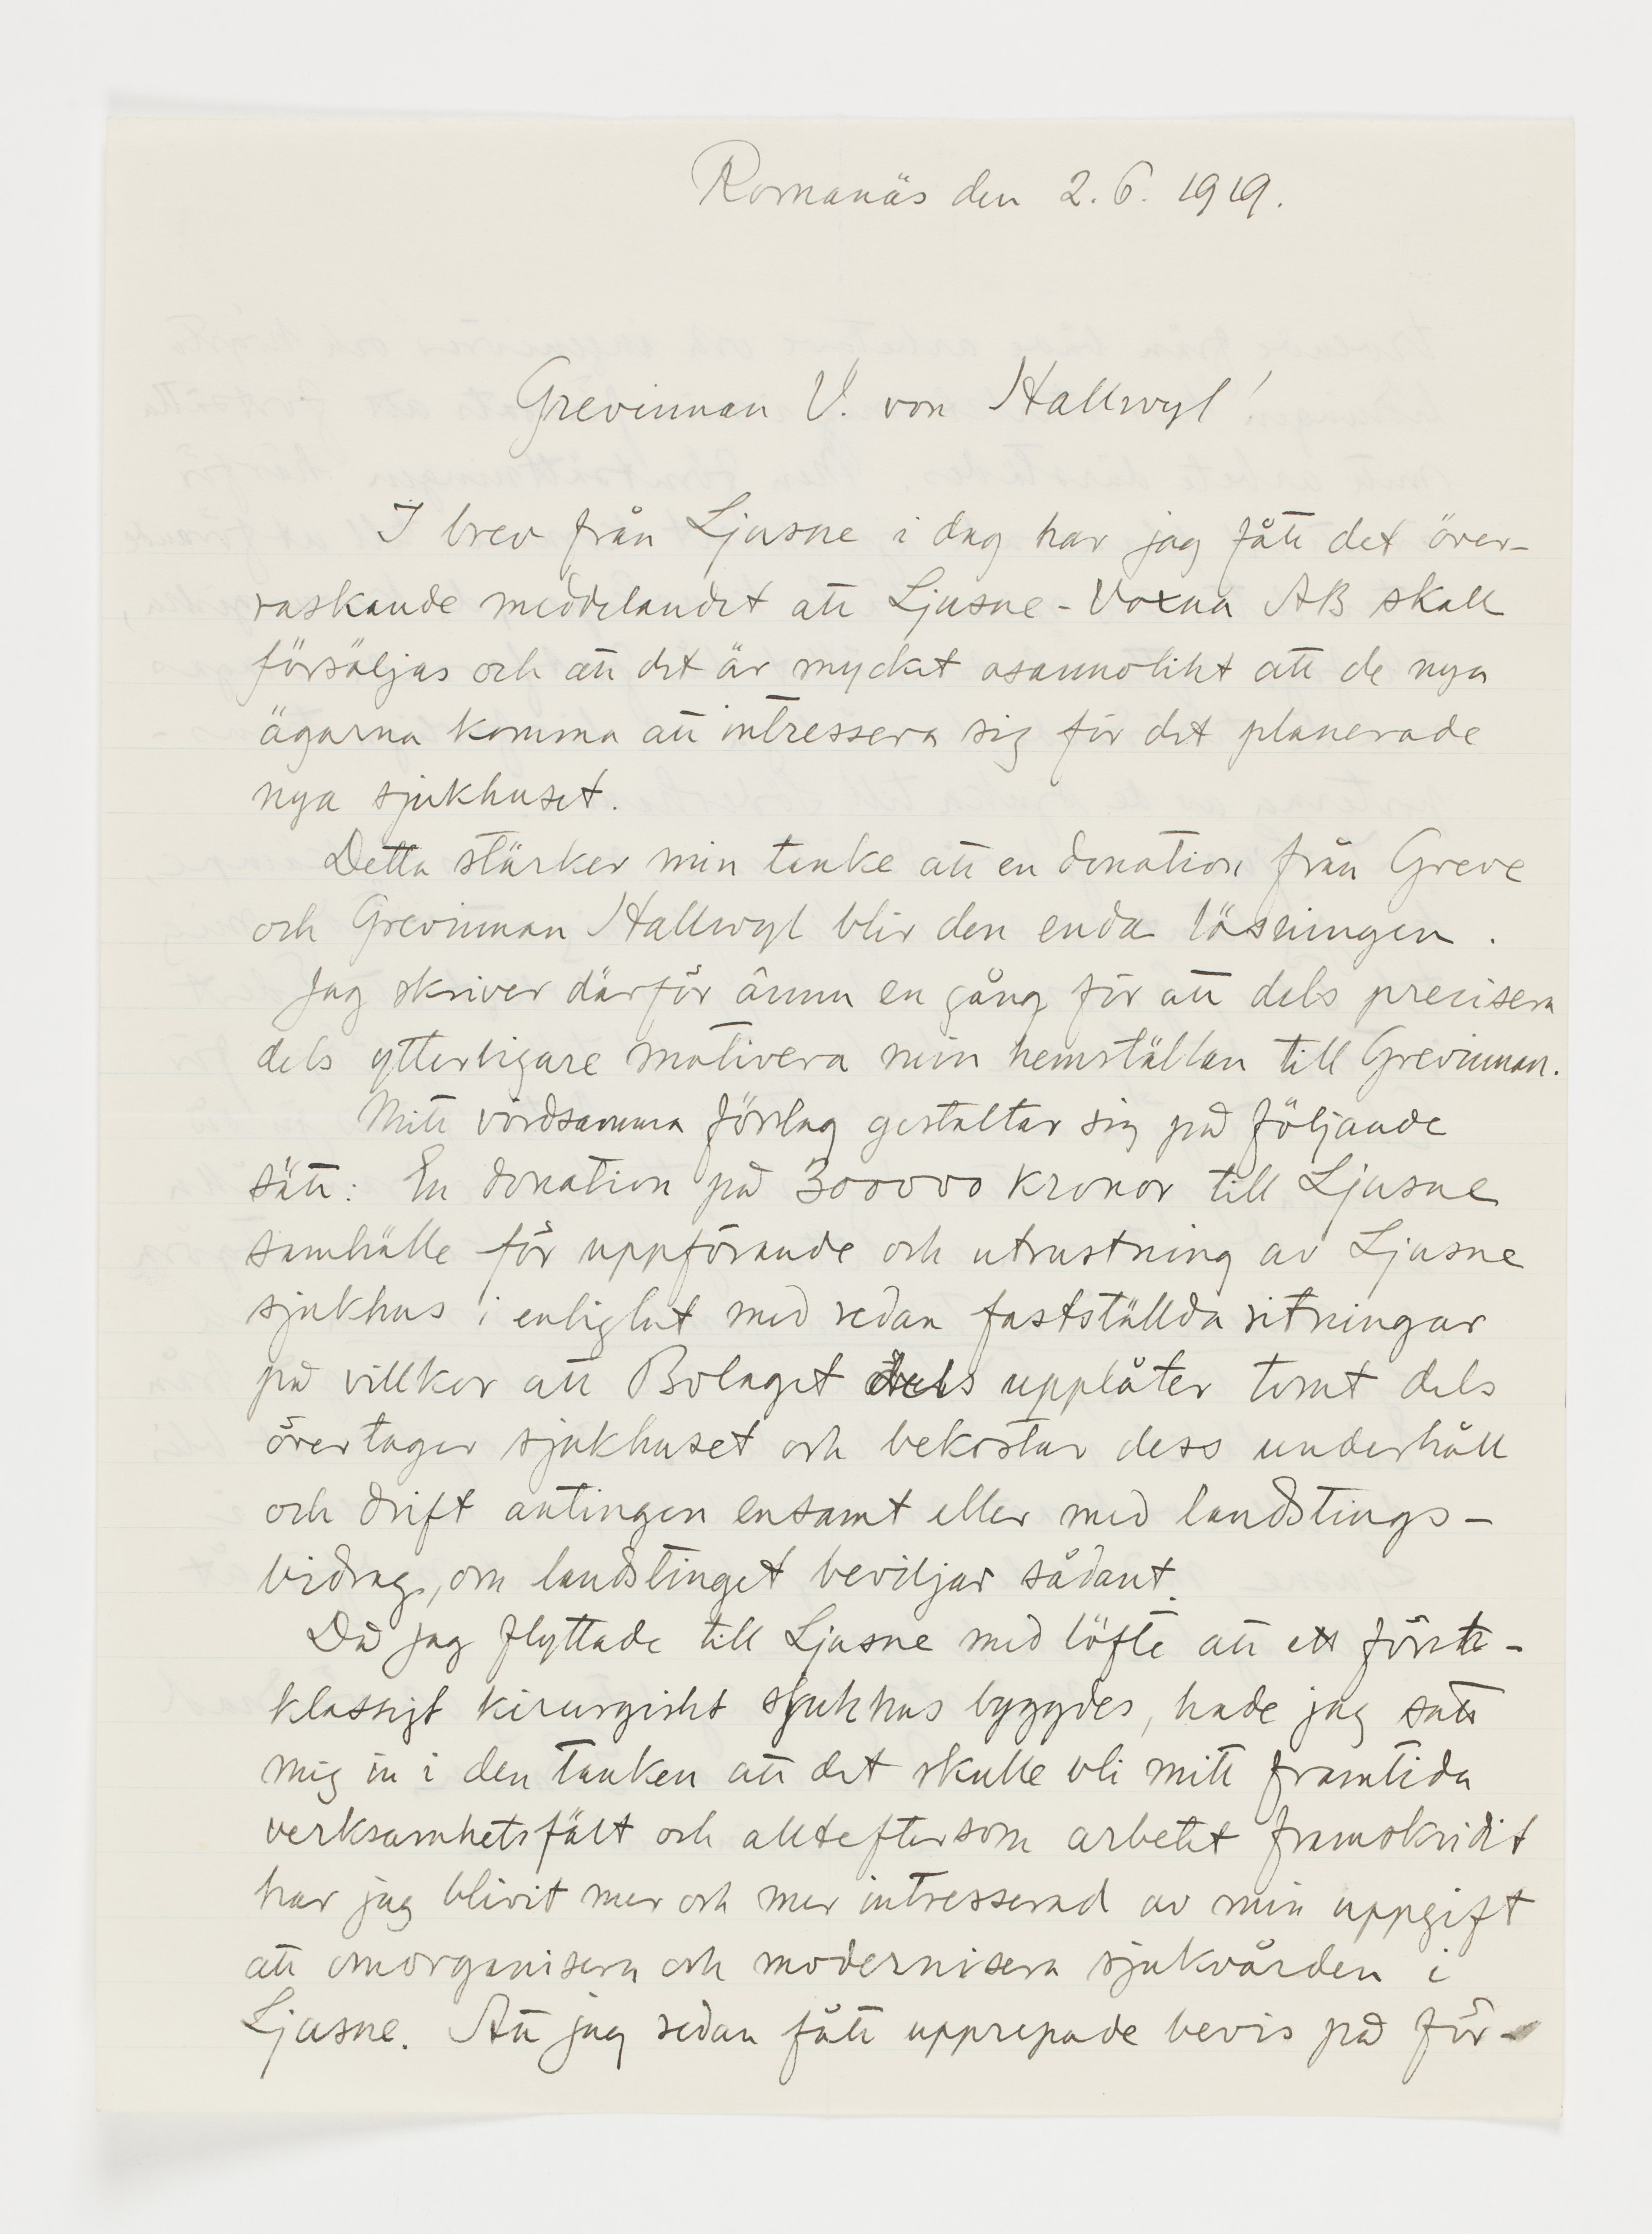 Romanäs den 2. 6. 1919.
Grevinnan V. von Hallwyl!
I brev från Ljusne i dag har jag fått det över-
raskande meddelandet att Ljusne-Voxna AB skall
försäljas och att det är mycket osannolikt att de nya
ägarna komma att intressera sig för det planerade
nya sjukhuset.
Detta stärker min tanke att en donation från Greve
och Grevinnan Hallwyl blir den enda lösningen.
Jag skriver därför ännu en gång för att dels precisera
dels ytterligare motivera min hemställan till Grevinnan.
Mitt vördsamma förslag gestaltar sig på följande
sätt: En donation på 300000 kronor till Ljusne
samhälle för uppförande och utrustning av Ljusne
sjukhus i enlighet med redan fastställda ritningar
på villkor att Bolaget dels upplåter tomt dels
övertager sjukhuset och bekostar dess underhåll
och drift antingen ensamt eller med landstings-
bidrag, om landstinget beviljar sådant.
Då jag flyttade till Ljusne med löfte att ett första-
klassigt kirurgiskt sjukhus byggdes, hade jag satt
mig in i den tanken att det skulle bli mitt framtida
verksamhetsfält och alltefter som arbetet framskridit
har jag blivit mer och mer intresserad av min uppgift
att omorganisera och modernisera sjukvården i
Ljusne. Att jag sedan fått upprepade bevis på för-